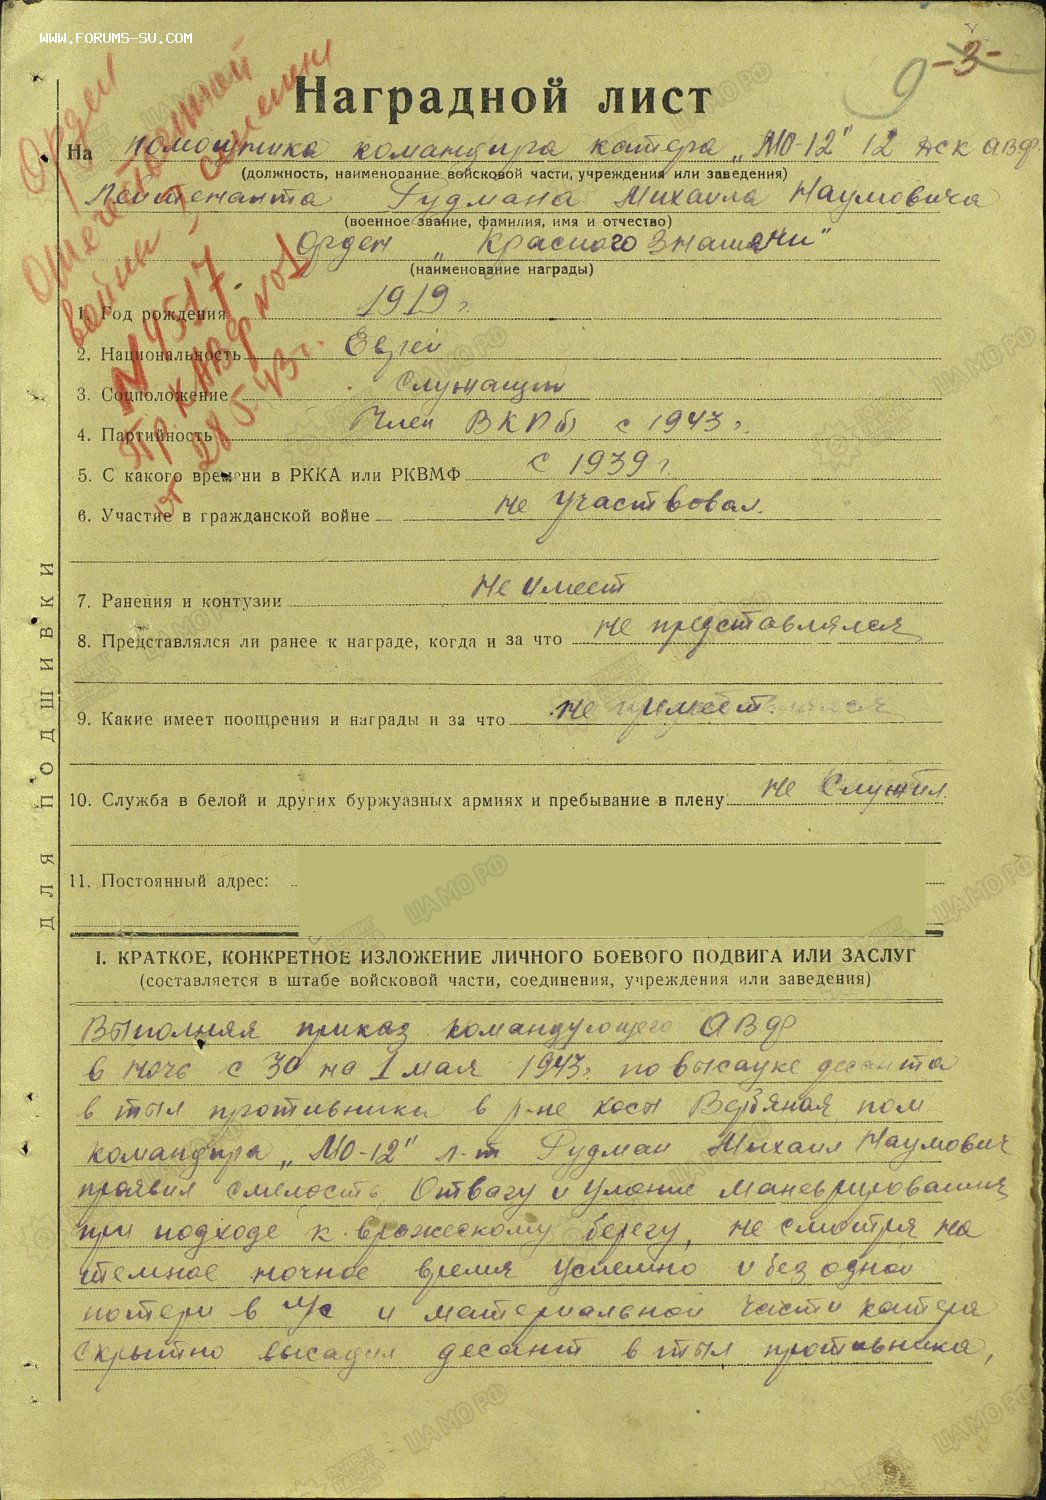 www.forums-su.com
9 -3-
Орден
Отечественной
войны I степени
N 9517
Пр. КАВФ №1
от 28.5.43 г.
Наградной лист
На помощника командира катера „МО-12" 12 АВФ
(должность, наименование войсковой части, учреждения или заведения)
Лейтенанта Гудмана Михаила Наумовича
(военное звание, фамилия, имя и отчество)
Орден „Красного Знамени"
(наименование награды)
1. Год рождения 1919 г.
2. Национальность Еврей
3. Соцположение Служащий
4. Партийность Член ВКПб с 1943 г.
5. С какого времени в РККА или РКВМФ с 1939 г.
6. Участие в гражданской войне не участвовал.
7. Ранения и контузии не имеет
8. Представлялся ли ранее к награде, когда и за что не представлялся
9. Какие имеет поощрения и награды и за что не имеет
10. Служба в белой и других буржуазных армиях и пребывание в плену не служил
11. Постоянный адрес:
ДЛЯ ПОДШИВКИ
I. КРАТКОЕ, КОНКРЕТНОЕ ИЗЛОЖЕНИЕ ЛИЧНОГО БОЕВОГО ПОДВИГА ИЛИ ЗАСЛУГ
(составляется в штабе войсковой части, соединения, учреждения или заведения)
Выполняя приказ командующего АВФ
в ночь с 30 на 1 мая 1943г. по высадке десанта
в тыл противника в р-не косы Вербяная, пом
командира „МО-12" л-т Гудман Михаил Наумович
проявил смелость Отвагу и умение маневрирования
при подходе к вражескому берегу, не смотря на
темное ночное время успешно и без одной
потери в л/с и материальной части катера
скрытно высадил десант в тыл противника,